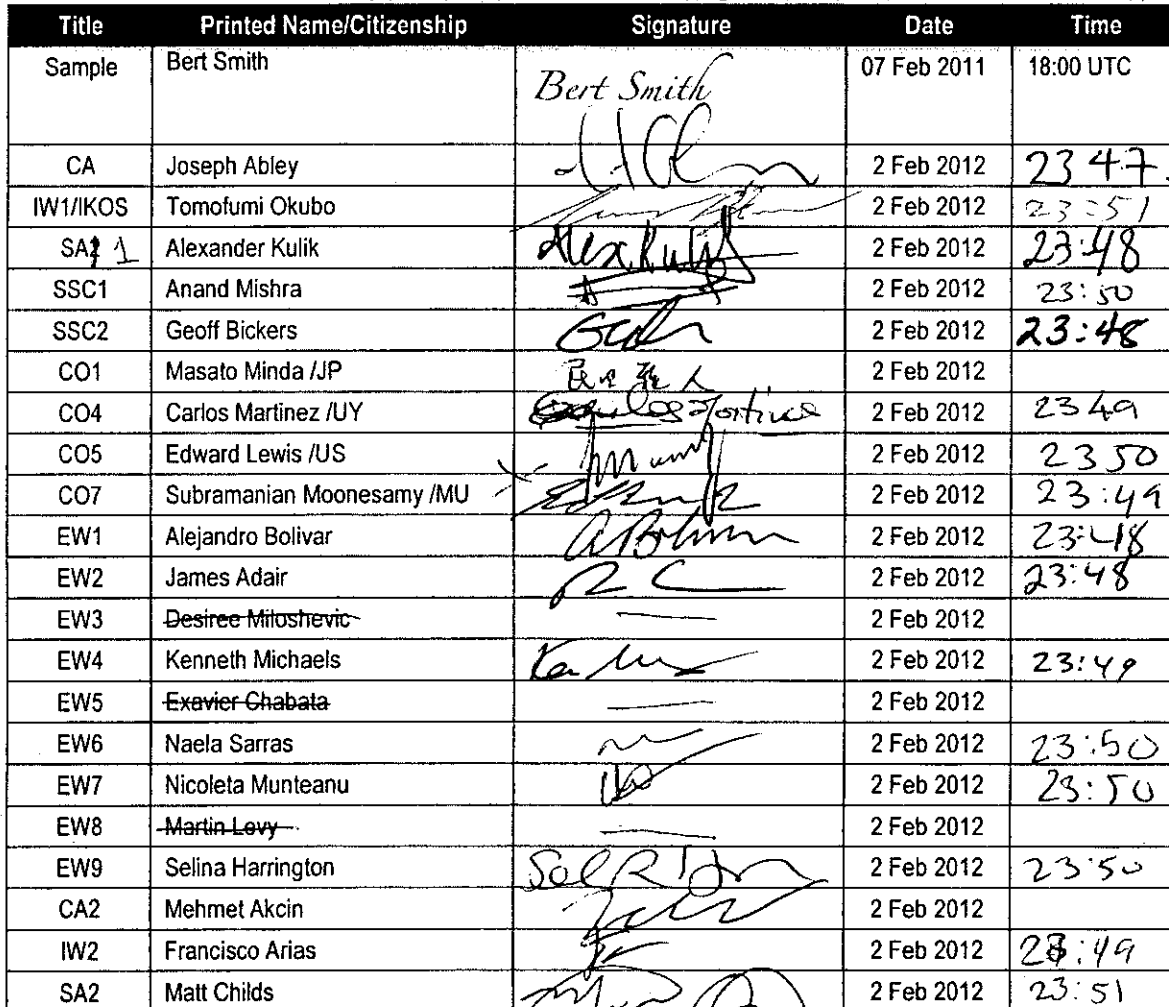 Title Printed Name/Citizenship Signature Date Time
Sample Bert Smith Bert Smith 07 Feb 2011 18:00 UTC
CA Joseph Abley 2 Feb 2012 23 47
IW1/IKOS Tomofumi Okubo 2 Feb 2012 23:51
SA1 Alexander Kulik Alex Kulik 2 Feb 2012 23:48
SSC1 Anand Mishra 2 Feb 2012 23:50
SSC2 Geoff Bickers 2 Feb 2012 23:48
CO1 Masato Minda /JP 2 Feb 2012
CO4 Carlos Martinez /UY Carlos Martinez 2 Feb 2012 23 49
CO5 Edward Lewis /US 2 Feb 2012 23 50
CO7 Subramanian Moonesamy /MU 2 Feb 2012 23:49
EW1 Alejandro Bolivar 2 Feb 2012 23:48
EW2 James Adair 2 Feb 2012 23:48
EW3 Desiree Miloshevic 2 Feb 2012
EW4 Kenneth Michaels 2 Feb 2012 23:49
EW5 Exavier Chabata 2 Feb 2012
EW6 Naela Sarras 2 Feb 2012 23:50
EW7 Nicoleta Munteanu 2 Feb 2012 23:50
EW8 Martin Levy 2 Feb 2012
EW9 Selina Harrington 2 Feb 2012 23:50
CA2 Mehmet Akcin 2 Feb 2012
IW2 Francisco Arias 2 Feb 2012 23:49
SA2 Matt Childs 2 Feb 2012 23:51